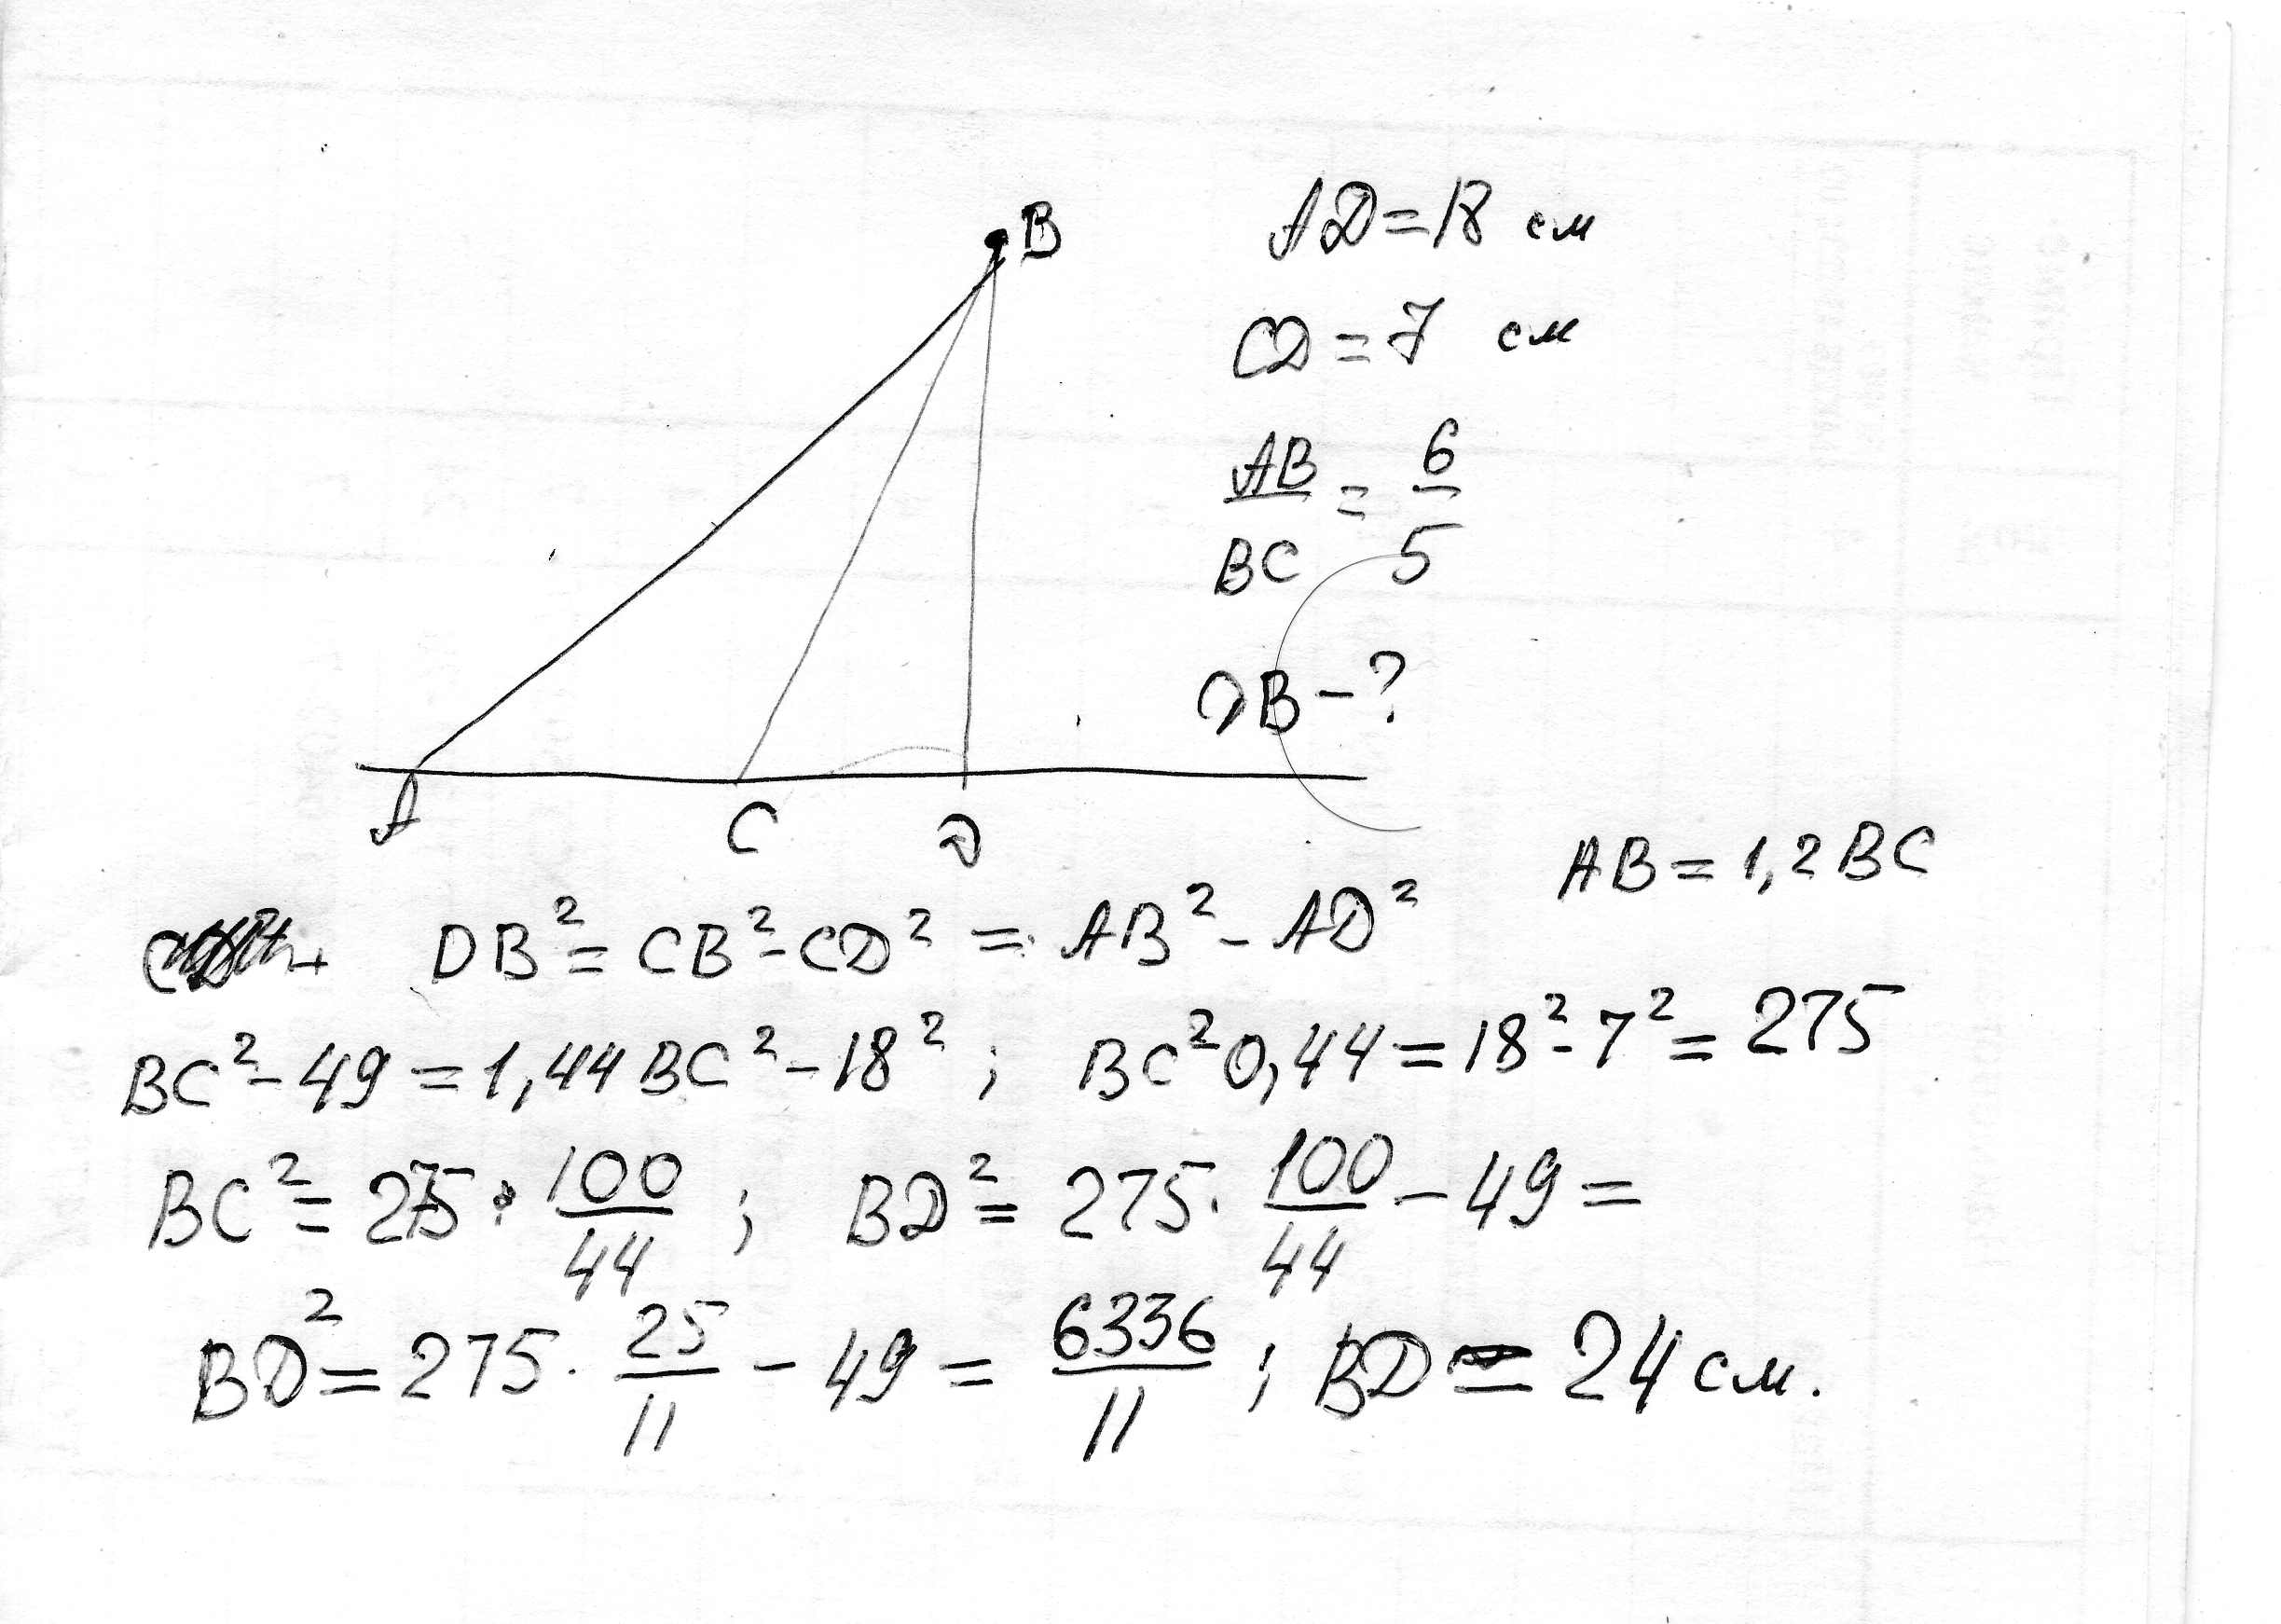 B
AD = 18 см
CD = 7 см
AB/BC = 6/5
DB - ?
A C D
AB = 1,2 BC
DB² = CB² - CD² = AB² - AD²
BC² - 49 = 1,44 BC² - 18² ; BC² 0,44 = 18² - 7² = 275
BC² = 275 · 100/44 ; BD² = 275 · 100/44 - 49 =
BD² = 275 · 25/11 - 49 = 6336/11 ; BD = 24 см.